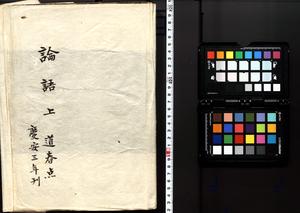 論語上 道春点
慶安三年刊